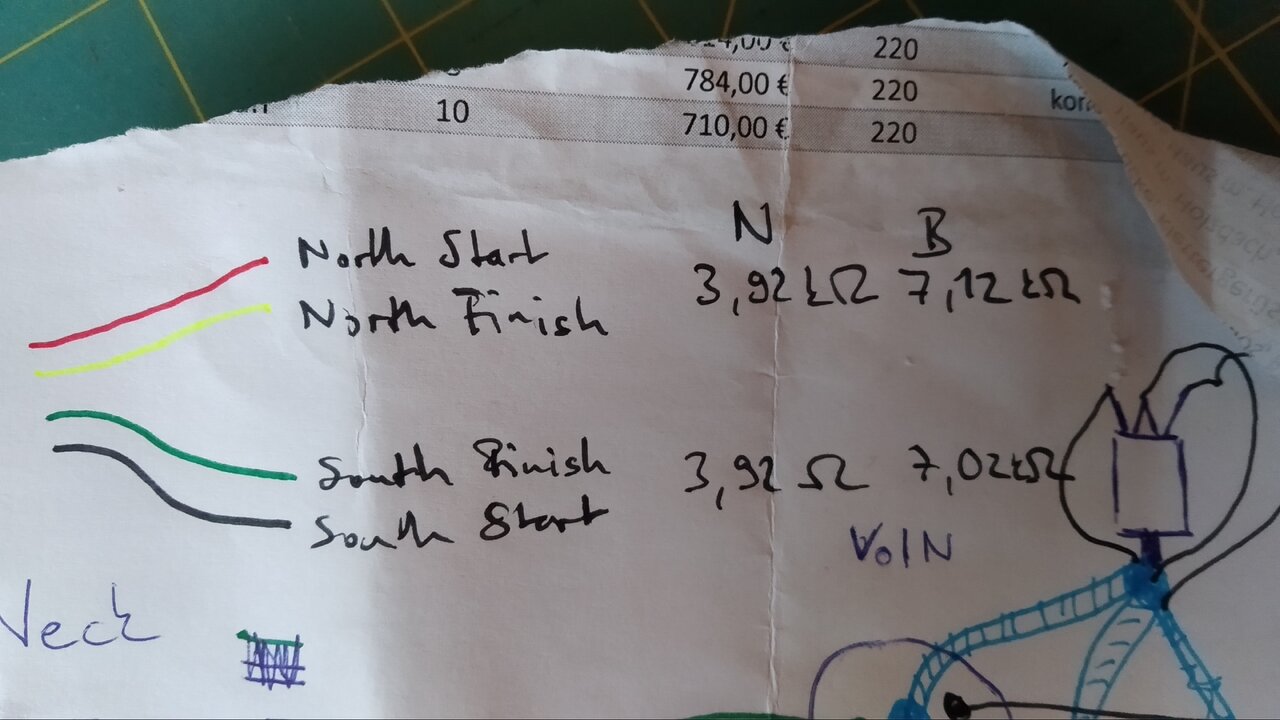 220
784,00 € 220
10 710,00 € 220
N B
North Start
3,92 kΩ 7,12 kΩ
North Finish
South Finish 3,92 Ω 7,02 kΩ
South Start
Vol N
Neck